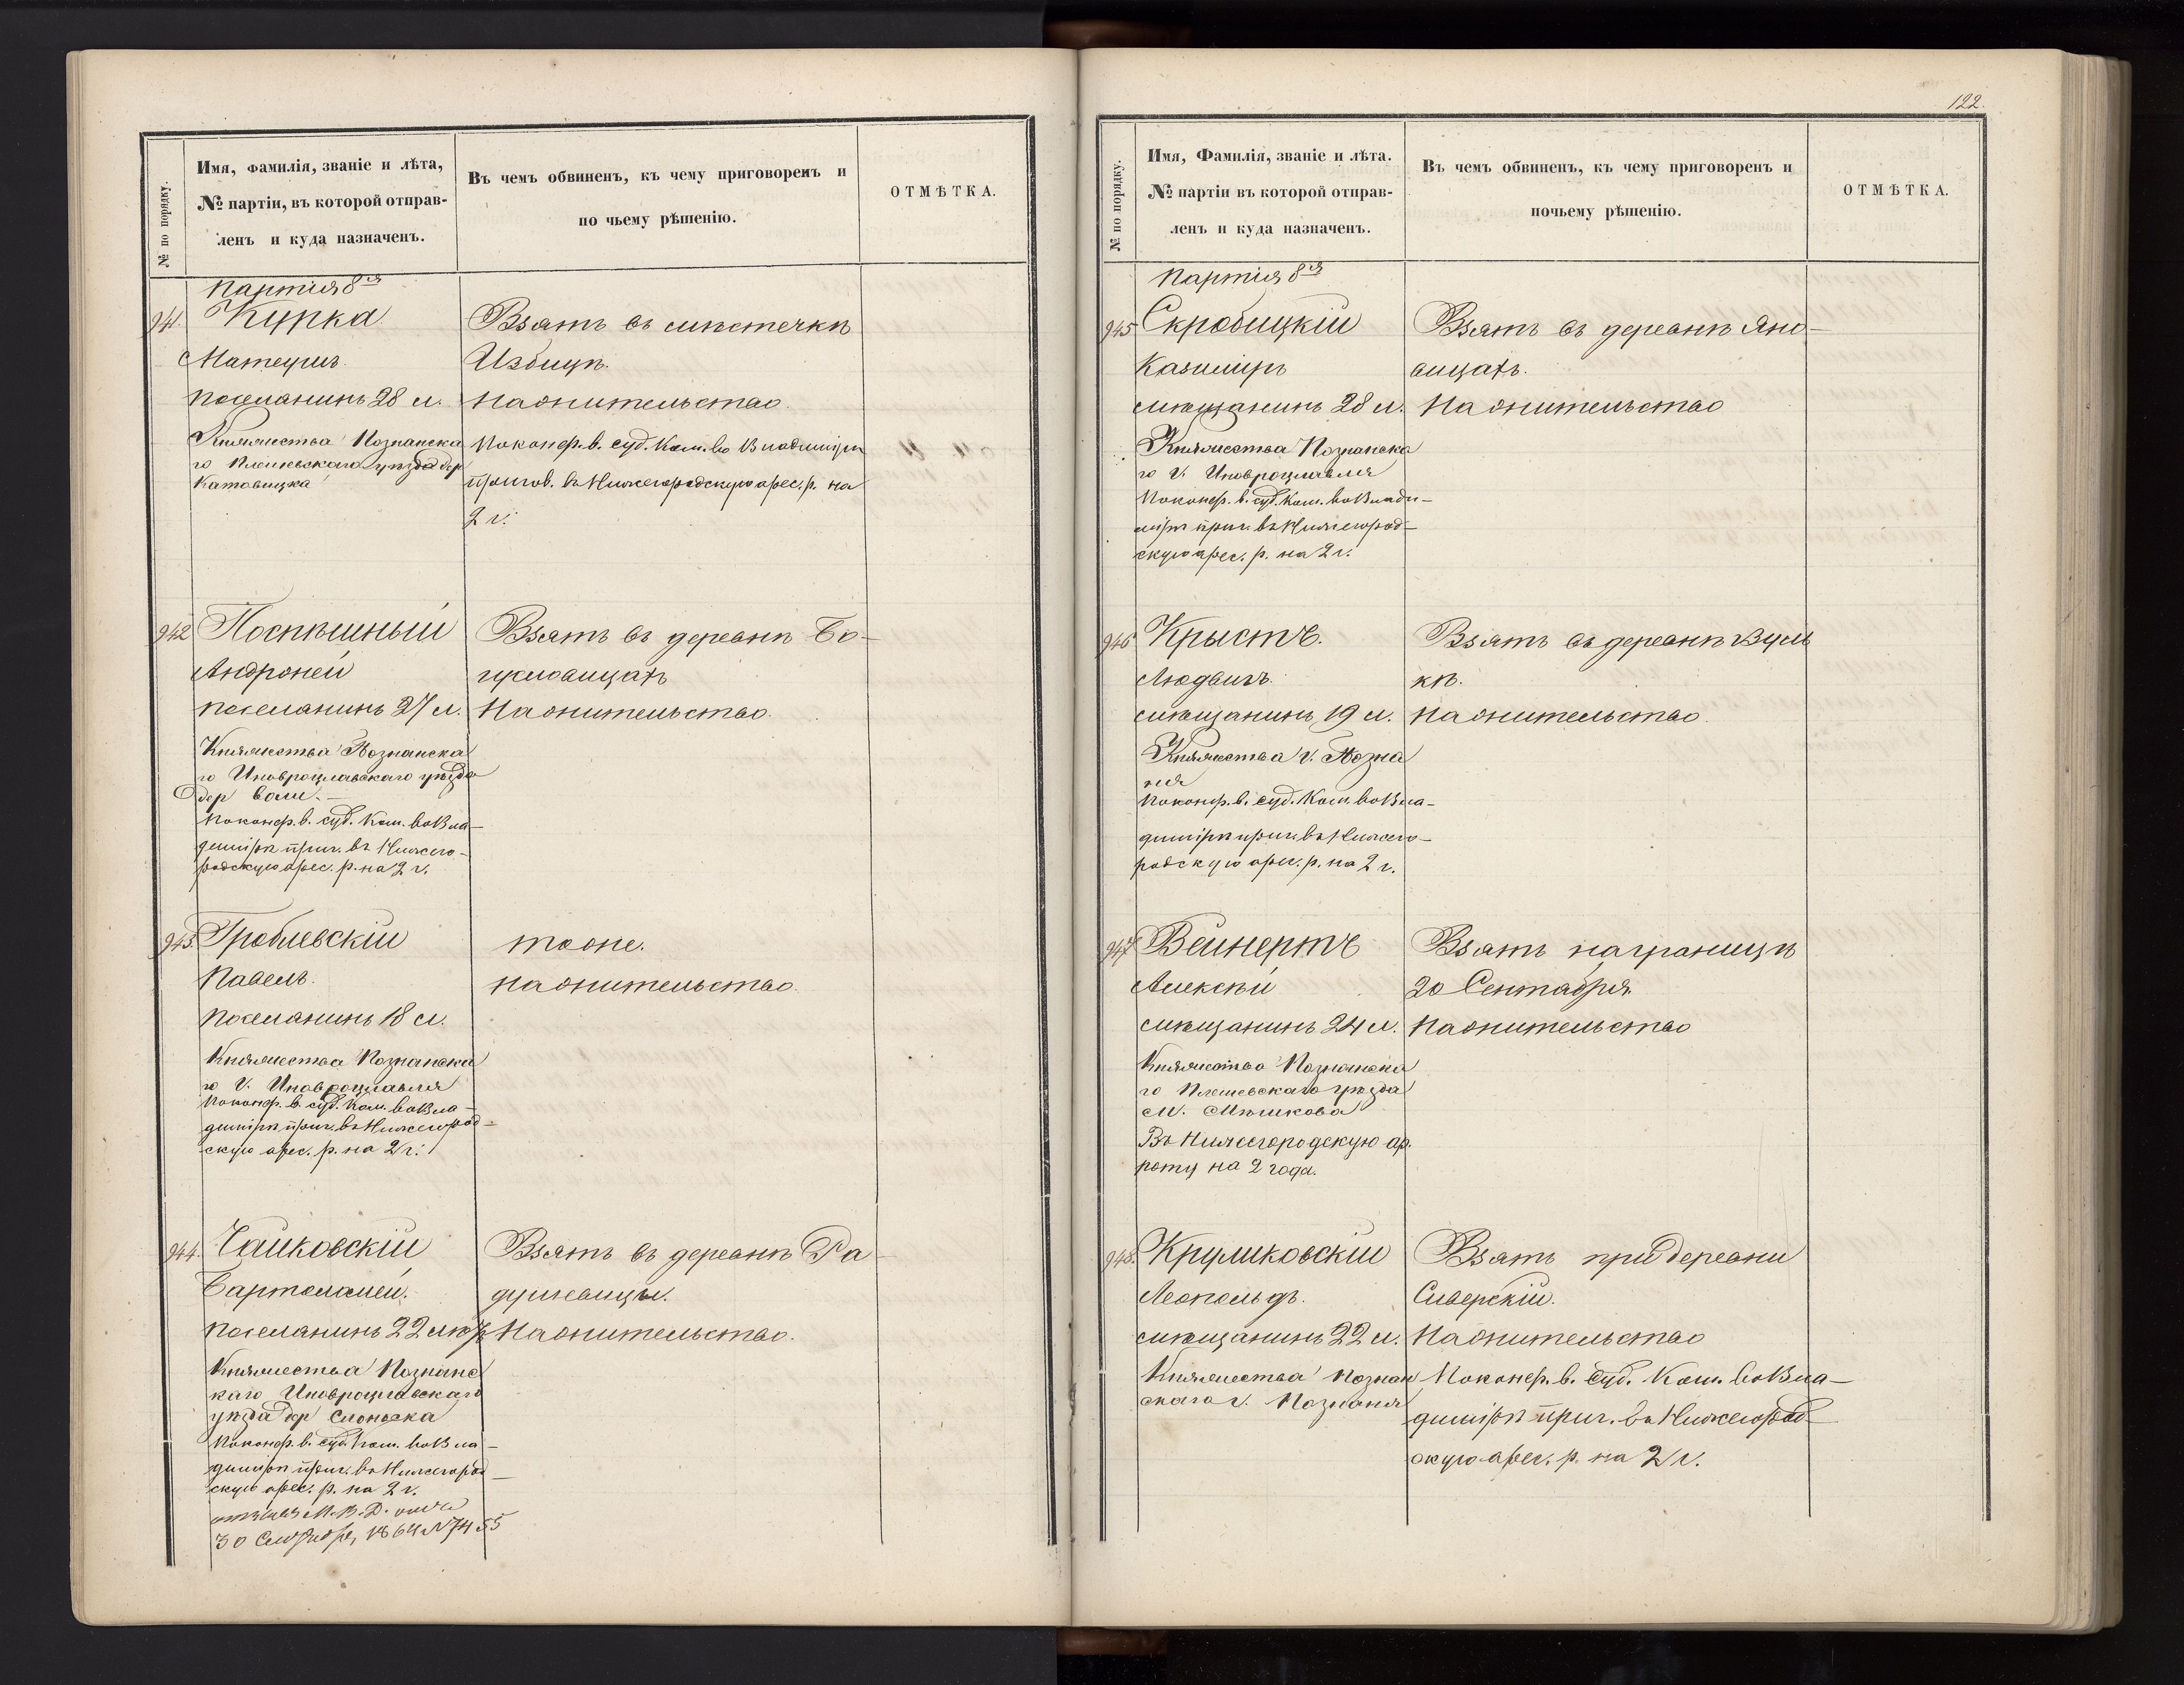 № по порядку.
Имя, фамилія, званіе и лѣта,
№ партіи, въ которой отправ-
ленъ и куда назначенъ.
Въ чемъ обвиненъ, къ чему приговоренъ и
по чьему рѣшенію.
ОТМѢТКА.
Партія 8я
941. Курка
Матеушъ.
поселанинъ 28 л.
Княжества Познанска
го Плешевскаго уѣзда дер
Катовицка
Взятъ въ мѣстечкѣ
Избицѣ.
На жительство.
По конф. в. суд. Ком. во Владимірѣ
пригов. въ Нижегородскую арес. р. на
2 г.
942 Поспѣшный
Андроней
поселанинъ 27 л.
Княжества Познанска
го Иновроцлавскаго уѣзда
дер
По конф. в. суд. Ком. во Вла-
димірѣ приг. въ Нижего-
родскую арес. р. на 2 г.
Взятъ въ деревнѣ Бо-
гуславицахъ
На жительство.
943. Гроблевскій
Павелъ.
Поселанинъ 18 л.
Княжества Познанска
го г. Иновроцлавля
По конф. в. суд. Ком. во Вла-
димірѣ приг. въ Нижегород-
скую арес. р. на 2 г.
тоже.
на жительство.
944. Чайковскій
Бартоломей.
Поселанинъ 22 лѣтъ
Княжества Познанс
каго Иновроцлавскаго
уѣзда дер Слонска
По конф. в. суд. Ком. во Вла-
димірѣ приг. въ Нижегород-
скую арес. р. на 2 г.
М. В. Д. отъ
30 1864 N 7455
Взятъ въ деревнѣ Ра-
дуневицы.
На жительство.
122.
№ по порядку.
Имя, Фамилія, званіе и лѣта.
№ партіи въ которой отправ-
ленъ и куда назначенъ.
Въ чемъ обвиненъ, къ чему приговоренъ и
почьему рѣшенію.
ОТМѢТКА.
Партія 8я
945 Скробицкій
Казиміръ
мѣщанинъ 28 л.
Княжества Познанска
го г. Иновроцлавля
По конф. в. суд. Ком. во Влади-
мірѣ приг. въ Нижегород-
скую арес. р. на 2 г.
Взятъ въ деревнѣ Яно-
вицахъ.
На жительство
946 Крыстъ.
Людвигъ.
мѣщанинъ 19 л.
Княжества г. Позна
ня
По конф. в. суд. Ком. во Вла-
димірѣ приг. въ Нижего-
родскую арес. р. на 2 г.
Взятъ въ деревнѣ Вуль
кѣ.
на жительство.
947 Вейнертъ
Алексѣй
мѣщанинъ 24 л.
Княжества Познанска
го Плешевскаго уѣзда
М. Мѣшкова
Въ Нижегородскую ар.
роту на 2 года.
Взятъ на границѣ
20 Сентября
На жительство
948. Круликовскій
Леопольдъ.
мѣщанинъ 22 л.
Княжества Познан
скаго г. Познаня
Взятъ при деревни
Сиверскій.
На жительство
По конф. в. суд. Ком. во Вла-
димірѣ приг. въ Нижегород-
скую арес. р. на 2 г.